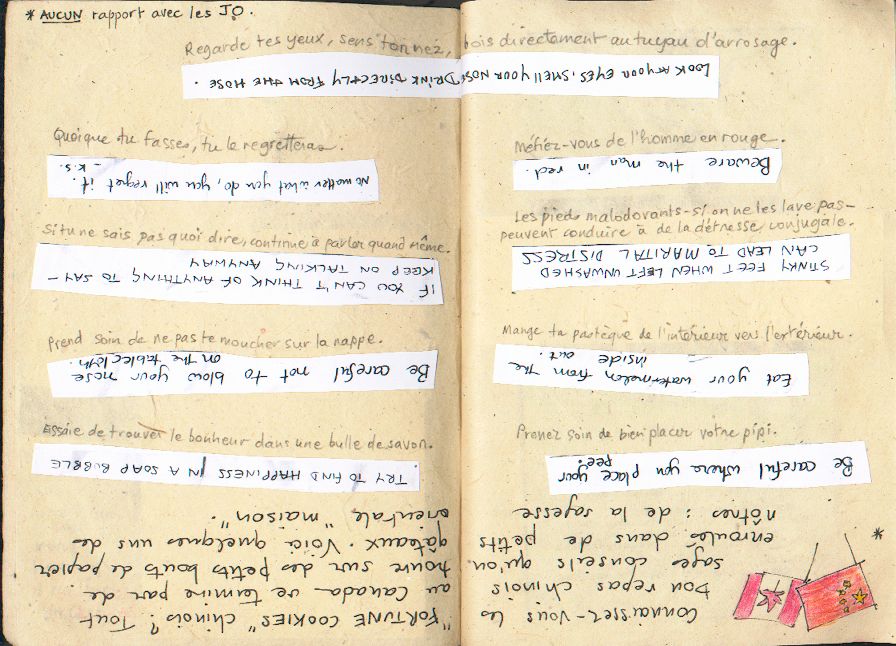 * AUCUN rapport avec les JO.
Regarde tes yeux, sens ton nez, bois directement au tuyau d'arrosage.
LOOK AT YOUR EYES, SMELL YOUR NOSE, DRINK DIRECTLY FROM THE HOSE.
Quoique tu fasses, tu le regretteras.
No matter what you do, you will regret it.
- K.S.
Si tu ne sais pas quoi dire, continue à parler quand même.
IF YOU CAN'T THINK OF ANYTHING TO SAY -
KEEP ON TALKING ANYWAY
Prend soin de ne pas te moucher sur la nappe.
Be careful not to blow your nose
on the tablecloth.
Essaie de trouver le bonheur dans une bulle de savon.
TRY TO FIND HAPPINESS IN A SOAP BUBBLE
Méfiez-vous de l'homme en rouge.
Beware the man in red.
Les pieds malodorants - si on ne les lave pas -
peuvent conduire à de la détresse conjugale.
STINKY FEET WHEN LEFT UNWASHED
CAN LEAD TO MARITAL DISTRESS
Mange ta pastèque de l'intérieur vers l'extérieur.
Eat your watermelon from the
inside out.
Prenez soin de bien placer votre pipi.
Be careful where you place your
pee.
Connaissez-vous les "FORTUNE COOKIES" chinois? Tout
bon repas chinois au Canada se termine par de
sages conseils qu'on trouve sur des petits bouts de papier
enroulés dans de petits gâteaux. Voici quelques uns des
nôtres : de la sagesse orientale "maison".
*